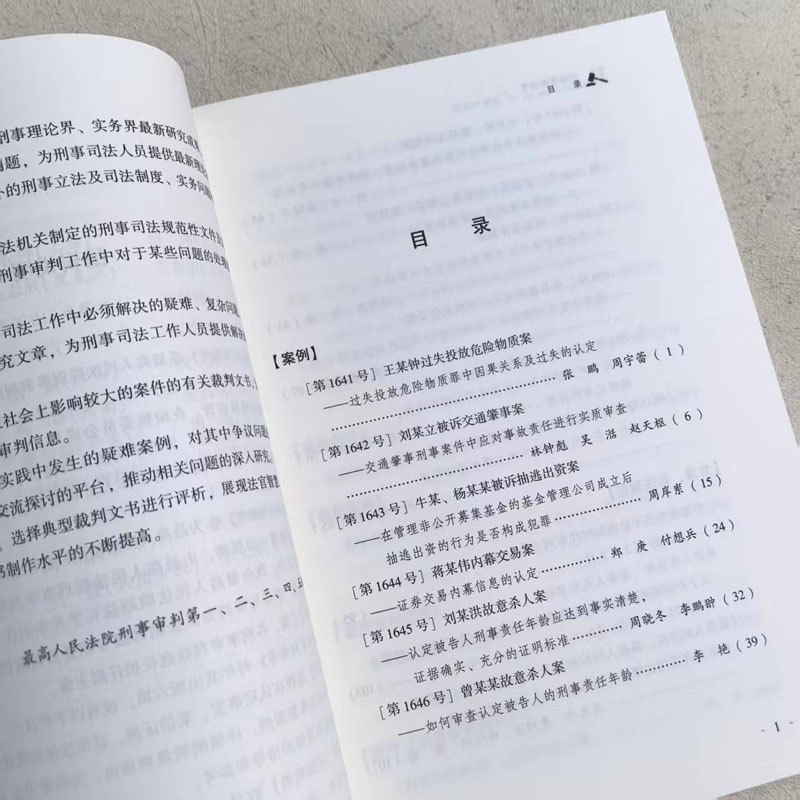 刑事理论界、实务界最新研究成果
问题，为刑事司法人员提供最新理论
的刑事立法及司法制度、实务问题
法机关制定的刑事司法规范性文件
刑事审判工作中对于某些问题的处理
司法工作中必须解决的疑难、复杂问题
究文章，为刑事司法工作人员提供解
社会上影响较大的案件的有关裁判文书
审判信息。
实践中发生的疑难案例，对其中争议问题
交流探讨的平台，推动相关问题的深入研究
选择典型裁判文书进行评析，展现法官智慧
书制作水平的不断提高。
最高人民法院刑事审判第一、二、三、四、
目 录
目 录
【案例】
[第1641号] 王某钟过失投放危险物质案
——过失投放危险物质罪中因果关系及过失的认定
张 鹏 周宇蕾（1）
[第1642号] 刘某立被诉交通肇事案
——交通肇事刑事案件中应对事故责任进行实质审查
林钟彪 吴 湉 赵天枢（6）
[第1643号] 牛某、杨某某被诉抽逃出资案
——在管理非公开募集基金的基金管理公司成立后
抽逃出资的行为是否构成犯罪 周岸岽（15）
[第1644号] 蒋某伟内幕交易案
——证券交易内幕信息的认定 郑 庚 付想兵（24）
[第1645号] 刘某洪故意杀人案
——认定被告人刑事责任年龄应达到事实清楚，
证据确实、充分的证明标准 周晓冬 李鹏翀（32）
[第1646号] 曾某某故意杀人案
——如何审查认定被告人的刑事责任年龄 李 艳（39）
- 1 -